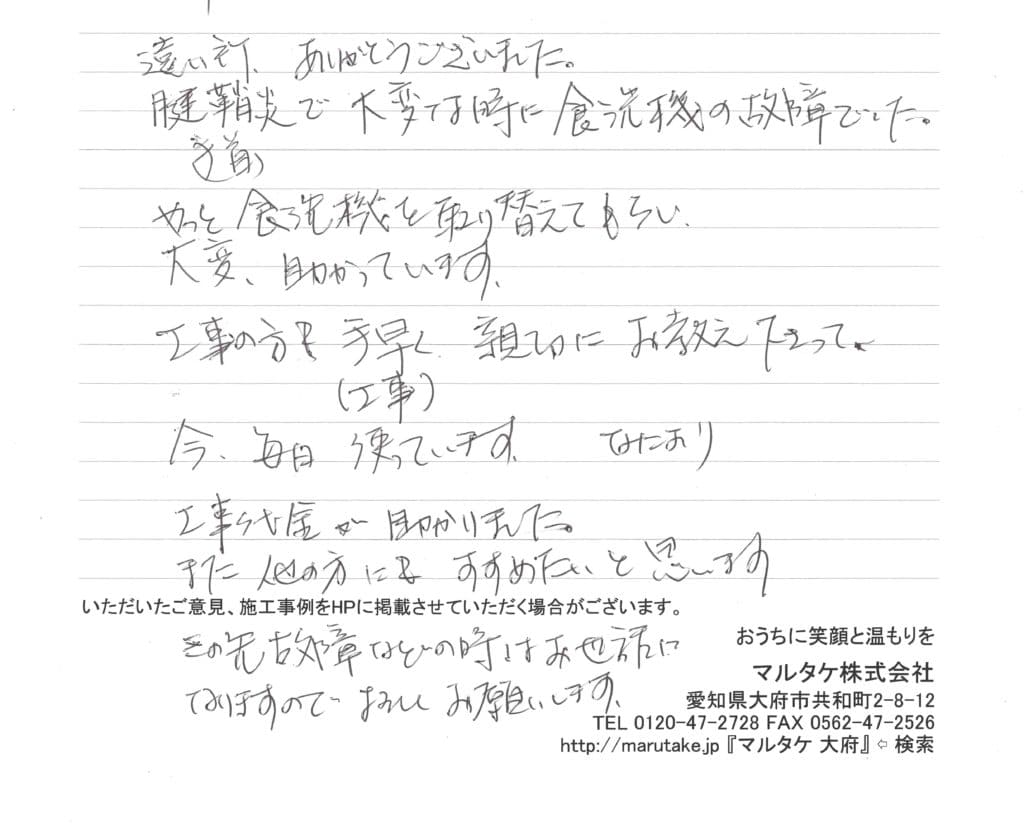 遠い所、ありがとうございました。
腱鞘炎で 大変な時に 食洗機の故障でした。
(手首)
やっと 食洗機を取り替えてもらい、
大変、助かっています。
工事の方も 手早く、親切に お教え下さって。
(工事)
今、毎日 使っています。 なにより
工事代金が 助かりました。
また 他の方にも すすめたいと 思います
いただいたご意見、施工事例をHPに掲載させていただく場合がございます。
この先故障などの時はお世話に
なりますので よろしく お願いします。
おうちに笑顔と温もりを
マルタケ株式会社
愛知県大府市共和町2-8-12
TEL 0120-47-2728 FAX 0562-47-2526
http://marutake.jp 『マルタケ 大府』 ⇦ 検索